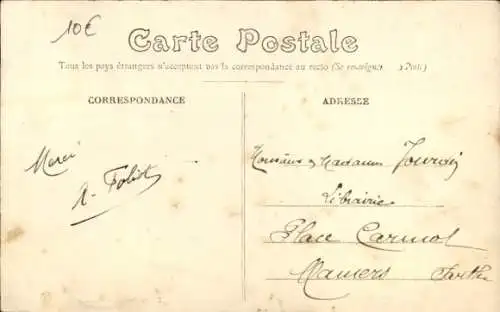 10€
Carte Postale
Tous les pays étrangers n'acceptent pas la correspondance au recto (Se renseigner à la Poste)
CORRESPONDANCE
ADRESSE
Merci
A. Foliot
Monsieur & Madame Jourdin
Librairie
Place Carnot
Mamers Sarthe